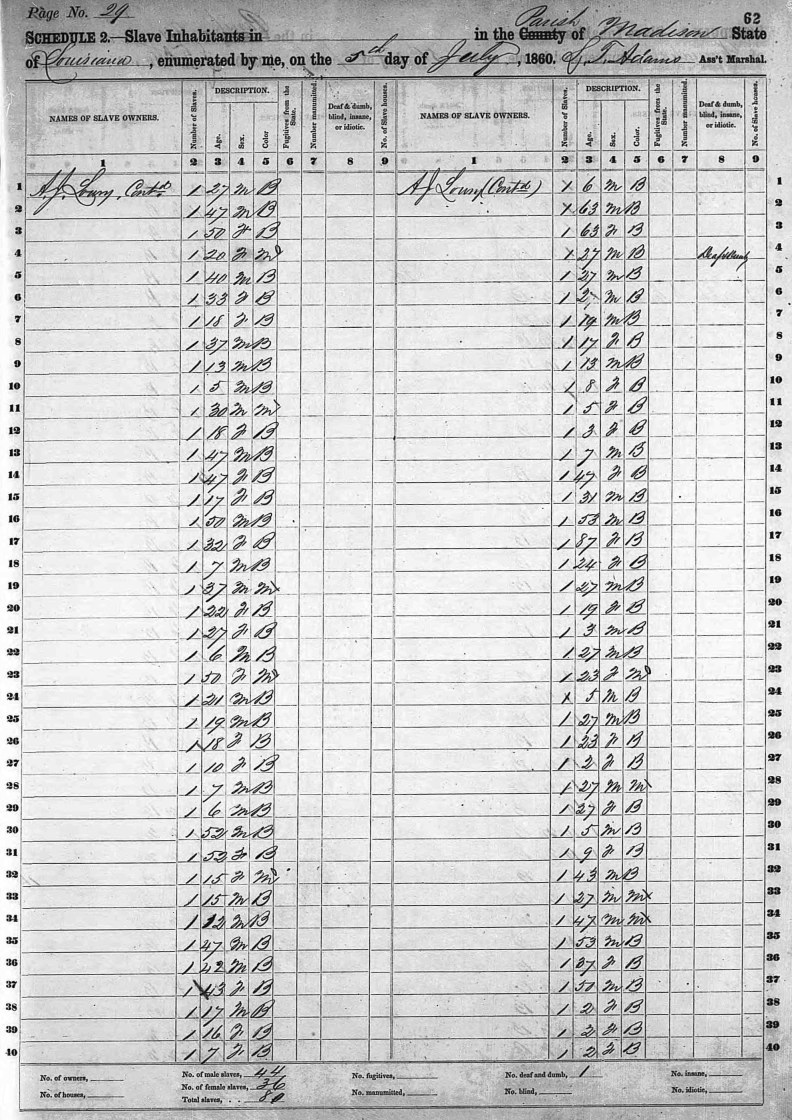 Page No. 29
62
SCHEDULE 2.—Slave Inhabitants in in the County Parish of Madison State
of Louisiana, enumerated by me, on the 5th day of July, 1860. S. T. Adams Ass't Marshal.
NAMES OF SLAVE OWNERS. Number of Slaves. DESCRIPTION. Age. Sex. Color. Fugitives from the State. Number manumitted. Deaf & dumb, blind, insane, or idiotic. No. of Slave houses. NAMES OF SLAVE OWNERS. Number of Slaves. DESCRIPTION. Age. Sex. Color. Fugitives from the State. Number manumitted. Deaf & dumb, blind, insane, or idiotic. No. of Slave houses.
1 2 3 4 5 6 7 8 9 1 2 3 4 5 6 7 8 9
1 A.J. Lowry Contd 1 27 M B A J Lowry (Contd) 1 6 M B 1
2 1 47 M B 1 63 M B 2
3 1 50 F B 1 63 F B 3
4 1 20 F M 1 27 M B Deaf & Dumb 4
5 1 40 M B 1 27 M B 5
6 1 33 F B 1 27 M B 6
7 1 18 F B 1 19 M B 7
8 1 37 M B 1 17 F B 8
9 1 13 M B 1 13 M B 9
10 1 5 M B 1 8 F B 10
11 1 30 M M 1 5 F B 11
12 1 18 F B 1 3 F B 12
13 1 47 M B 1 7 M B 13
14 1 47 F B 1 47 F B 14
15 1 17 F B 1 31 M B 15
16 1 50 M B 1 53 M B 16
17 1 32 F B 1 87 F B 17
18 1 7 M B 1 24 F B 18
19 1 37 M M 1 27 M B 19
20 1 22 F B 1 19 F B 20
21 1 27 F B 1 3 M B 21
22 1 6 M B 1 27 M B 22
23 1 50 F M 1 23 F M 23
24 1 21 M B 1 5 M B 24
25 1 19 M B 1 27 M B 25
26 1 18 F B 1 23 F B 26
27 1 10 F B 1 2 F B 27
28 1 7 M B 1 27 M M 28
29 1 6 M B 1 27 F B 29
30 1 52 M B 1 5 M B 30
31 1 52 F B 1 9 F B 31
32 1 15 F M 1 43 M B 32
33 1 15 M B 1 27 M M 33
34 1 12 M B 1 47 M M 34
35 1 47 M B 1 53 M B 35
36 1 42 M B 1 37 F B 36
37 1 43 F B 1 50 M B 37
38 1 17 M B 1 2 F B 38
39 1 16 F B 1 2 F B 39
40 1 7 F B 1 2 F B 40
No. of owners, No. of male slaves, 44 No. fugitives, No. deaf and dumb, 1 No. insane,
No. of houses, No. of female slaves, 36 No. manumitted, No. blind, No. idiotic,
Total slaves, 80